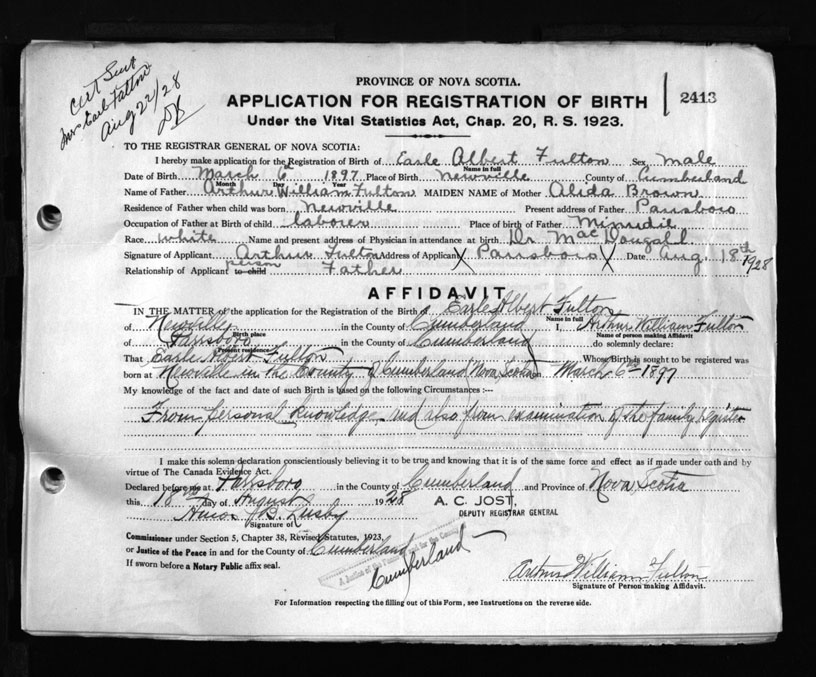 Cert Sent
Mrs Earl Fulton
Aug 22/28
PROVINCE OF NOVA SCOTIA.
APPLICATION FOR REGISTRATION OF BIRTH
2413
Under the Vital Statistics Act, Chap. 20, R. S. 1923.
TO THE REGISTRAR GENERAL OF NOVA SCOTIA:
I hereby make application for the Registration of Birth of Earle Albert Fulton Sex Male
Name in full
Date of Birth March 6th 1897 Place of Birth Newville County of Cumberland
Month Day Year
Name of Father Arthur William Fulton MAIDEN NAME of Mother Alida Brown
Residence of Father when child was born Newville Present address of Father Parrsboro
Occupation of Father at Birth of child laborer Place of birth of Father Minudie
Race white Name and present address of Physician in attendance at birth Dr MacDougall
Signature of Applicant Arthur Fulton Address of Applicant X Parrsboro X Date Aug. 18th 1928
Relationship of Applicant to child person Father
AFFIDAVIT
IN THE MATTER of the application for the Registration of the Birth of Earle Albert Fulton
Name in full
of Newville in the County of Cumberland I, Arthur William Fulton
Birth place Name of person making Affidavit
of Parrsboro in the County of Cumberland do solemnly declare:
Present residence
That Earle Albert Fulton Whose Birth is sought to be registered was
born at Newville in the County of Cumberland Nova Scotia on March 6th 1897
My knowledge of the fact and date of such Birth is based on the following Circumstances :--
From personal knowledge and also from examination of the family register
I make this solemn declaration conscientiously believing it to be true and knowing that it is of the same force and effect as if made under oath and by
virtue of The Canada Evidence Act.
Declared before me at Parrsboro in the County of Cumberland and Province of Nova Scotia
this 18th day of August 1928 A. C. JOST,
DEPUTY REGISTRAR GENERAL
Amos B. Lusby
Signature of
Commissioner under Section 5, Chapter 38, Revised Statutes, 1923,
or Justice of the Peace in and for the County of Cumberland
A Justice of the Peace in and for the County
Cumberland
If sworn before a Notary Public affix seal.
Arthur William Fulton
Signature of Person making Affidavit.
For Information respecting the filling out of this Form, see Instructions on the reverse side.